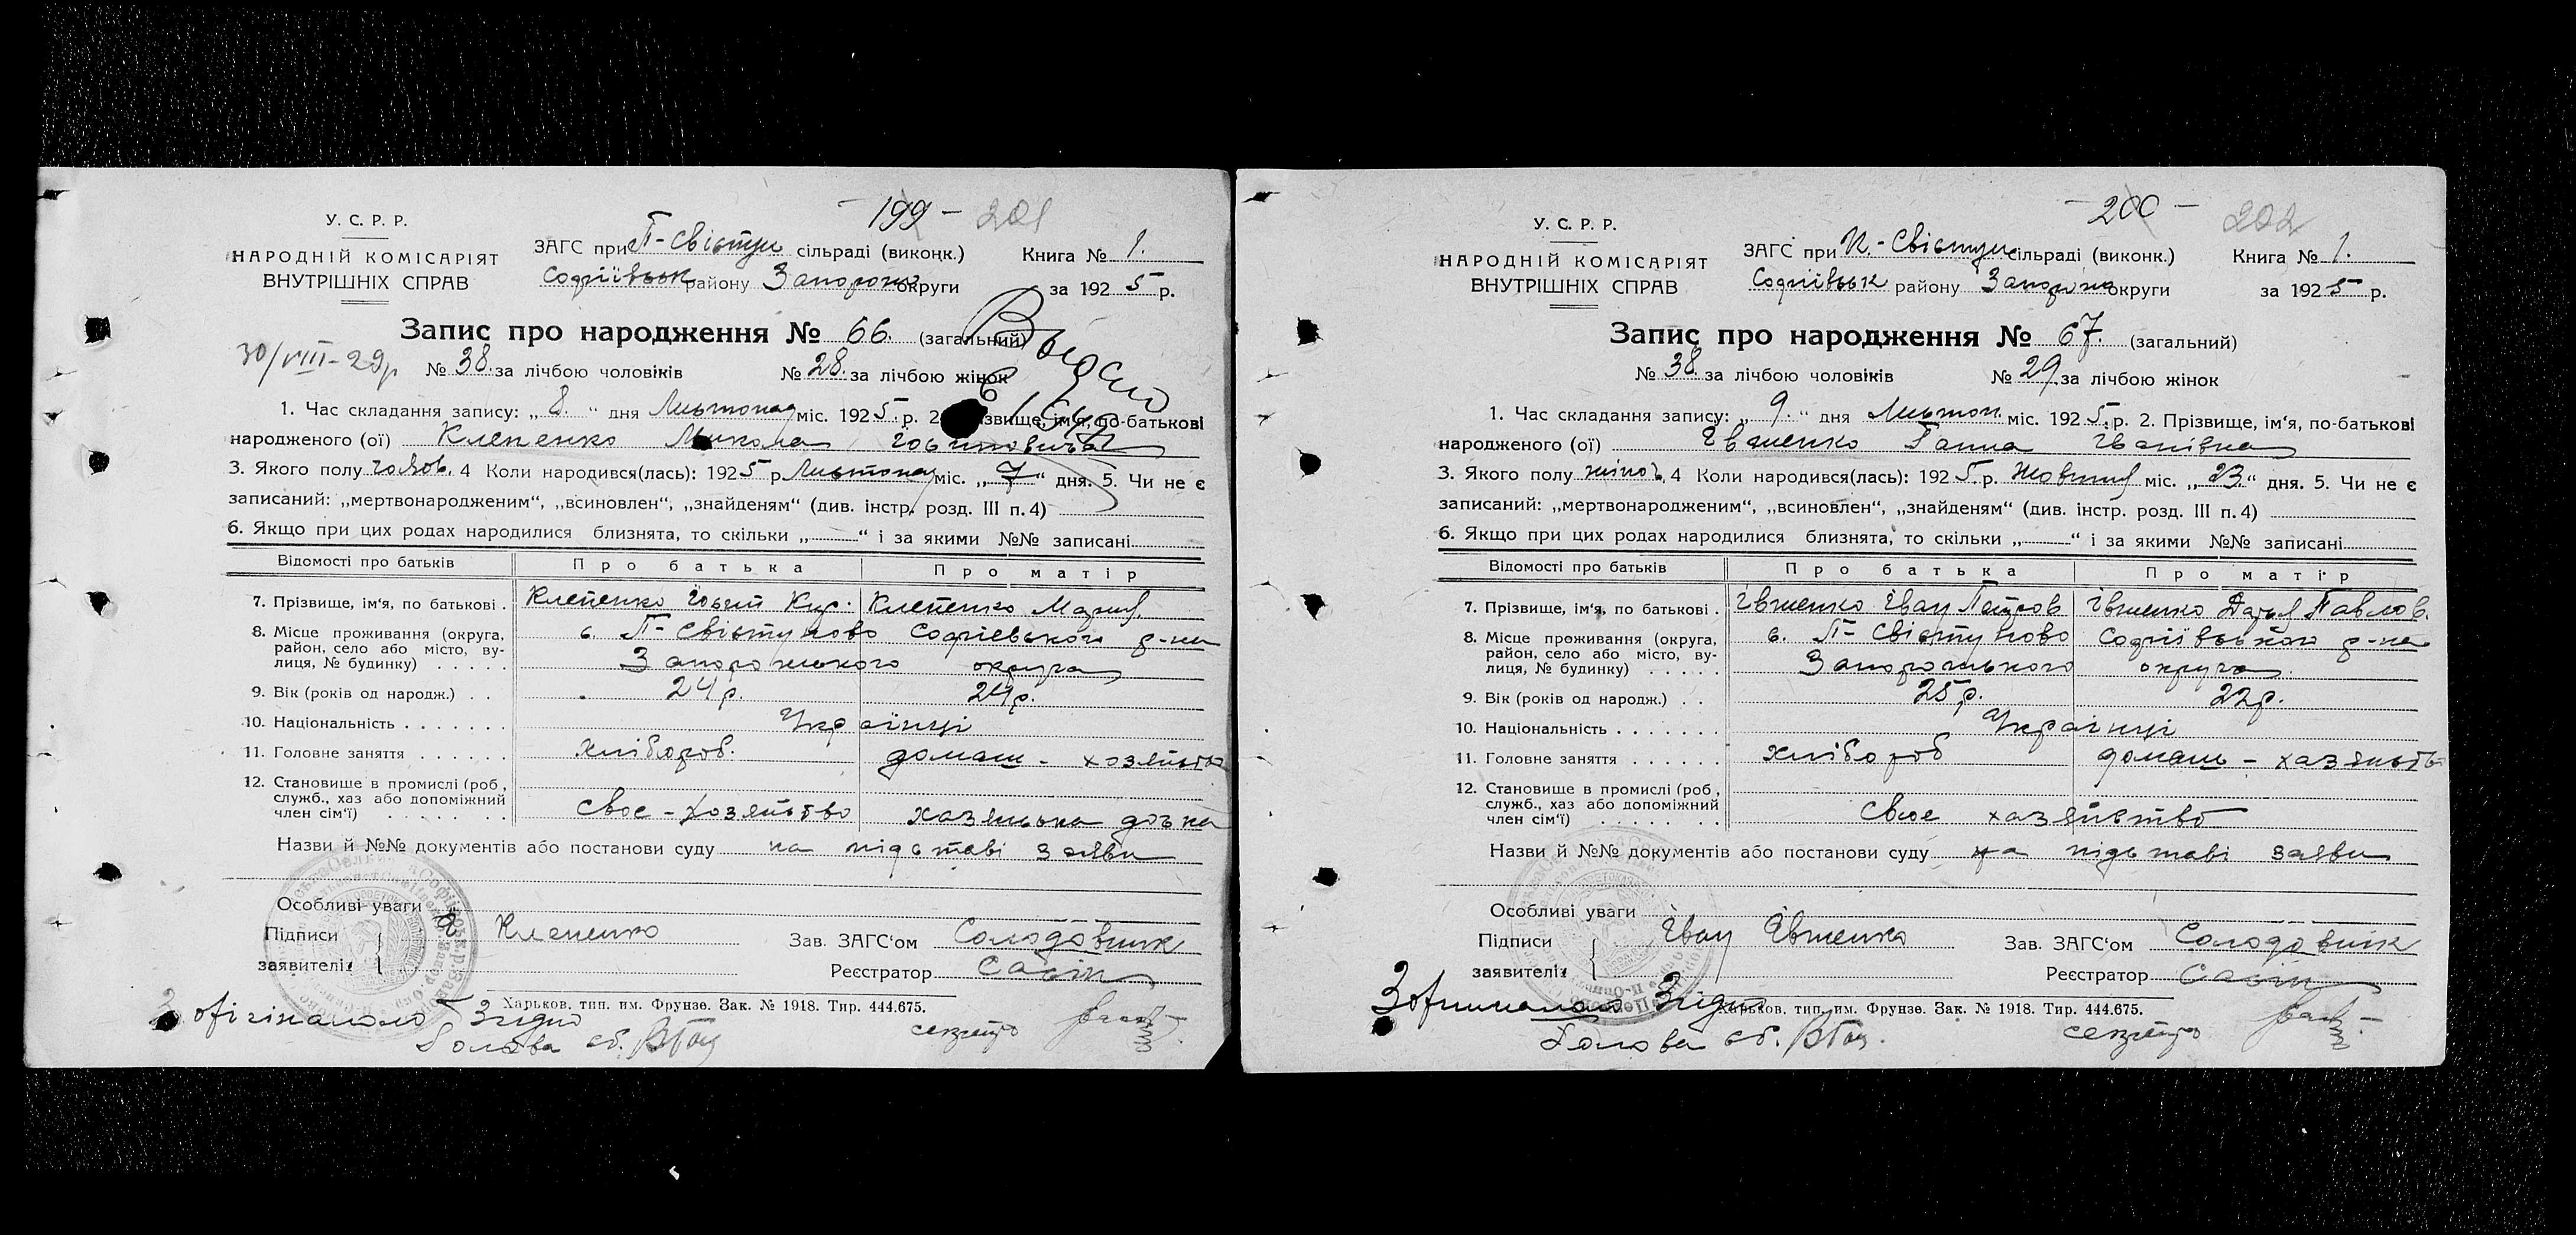 - 199 - 201
У. С. Р. Р.
НАРОДНІЙ КОМІСАРІЯТ
ВНУТРІШНІХ СПРАВ
ЗАГС при П-Свістун сільраді (виконк.) Книга № 1.
Софіївськ району Запорож округи за 1925 р.
Запис про народження № 66. (загальний)
30/VIII-29р № 38. за лічбою чоловіків № 28. за лічбою жінок
1. Час складання запису: „ 8. “ дня Листопад міс. 1925 р. 2. Прізвище, ім'я, по-батькові
народженого (ої) Клепенко Микола
3. Якого полу чолов. 4 Коли народився(лась): 1925 р. Листопад міс. „ 7 “ дня. 5. Чи не є
записаний: „мертвонародженим“, „всиновлен“, „знайденям“ (див. інстр. розд. III п. 4)
6. Якщо при цих родах народилися близнята, то скільки „ — “ і за якими №№ записані
Відомості про батьків Про батька Про матір
7. Прізвище, ім'я, по батькові . Клепенко Кир. Клепенко
8. Місце проживання (округа, район, село або місто, вулиця, № будинку) с. П-Свістуново Софієвського р-на
Запорожського округа
9. Вік (років од народж.) . . 24 р. 24 р.
10. Національність . . . . . . Українці
11. Головне заняття . . . . . . хлібороб. домаш - хозяйство
12. Становище в промислі (роб, служб., хаз або допоміжний член сім'ї) свое - хозяйство хазяйська дочка
Назви й №№ документів або постанови суду на підставі заяви
Особливі уваги
Підписи заявителів { Клепенко Зав. ЗАГС'ом Солодовник
Реєстратор
Харьков, тип. им. Фрунзе. Зак. № 1918. Тир. 444.675.
З офігіналом Згідно
Голова сб. секретр
- 200 - 202
У. С. Р. Р.
НАРОДНІЙ КОМІСАРІЯТ
ВНУТРІШНІХ СПРАВ
ЗАГС при П.-Свістун сільраді (виконк.) Книга № 1.
Софіївськ району Запоріж округи за 1925 р.
Запис про народження № 67. (загальний)
№ 38. за лічбою чоловіків № 29. за лічбою жінок
1. Час складання запису: „ 9. “ дня Листоп. міс. 1925 р. 2. Прізвище, ім'я, по-батькові
народженого (ої) Івженко Ганна Іванівна
3. Якого полу жіноч. 4 Коли народився(лась): 1925 р. Жовтня міс. „ 23. “ дня. 5. Чи не є
записаний: „мертвонародженим“, „всиновлен“, „знайденям“ (див. інстр. розд. III п. 4)
6. Якщо при цих родах народилися близнята, то скільки „ — “ і за якими №№ записані
Відомості про батьків Про батька Про матір
7. Прізвище, ім'я, по батькові . Івженко Іван Петров Івженко Павлов.
8. Місце проживання (округа, район, село або місто, вулиця, № будинку) с. П-Свістуново Софіївського р-на
Запорожського округа
9. Вік (років од народж.) . . 25 р. 22 р.
10. Національність . . . . . . . Українці
11. Головне заняття . . . . . . хлібороб домаш - хазяйств
12. Становище в промислі (роб, служб., хаз або допоміжний член сім'ї) Свое хазяйство
Назви й №№ документів або постанови суду на підставі заяви
Особливі уваги
Підписи заявителів { Іван Івженко Зав. ЗАГС'ом Солодовнік
Реєстратор
Харьков, тип. им. Фрунзе. Зак. № 1918. Тир. 444.675.
Згідно
Голова сб. секретр